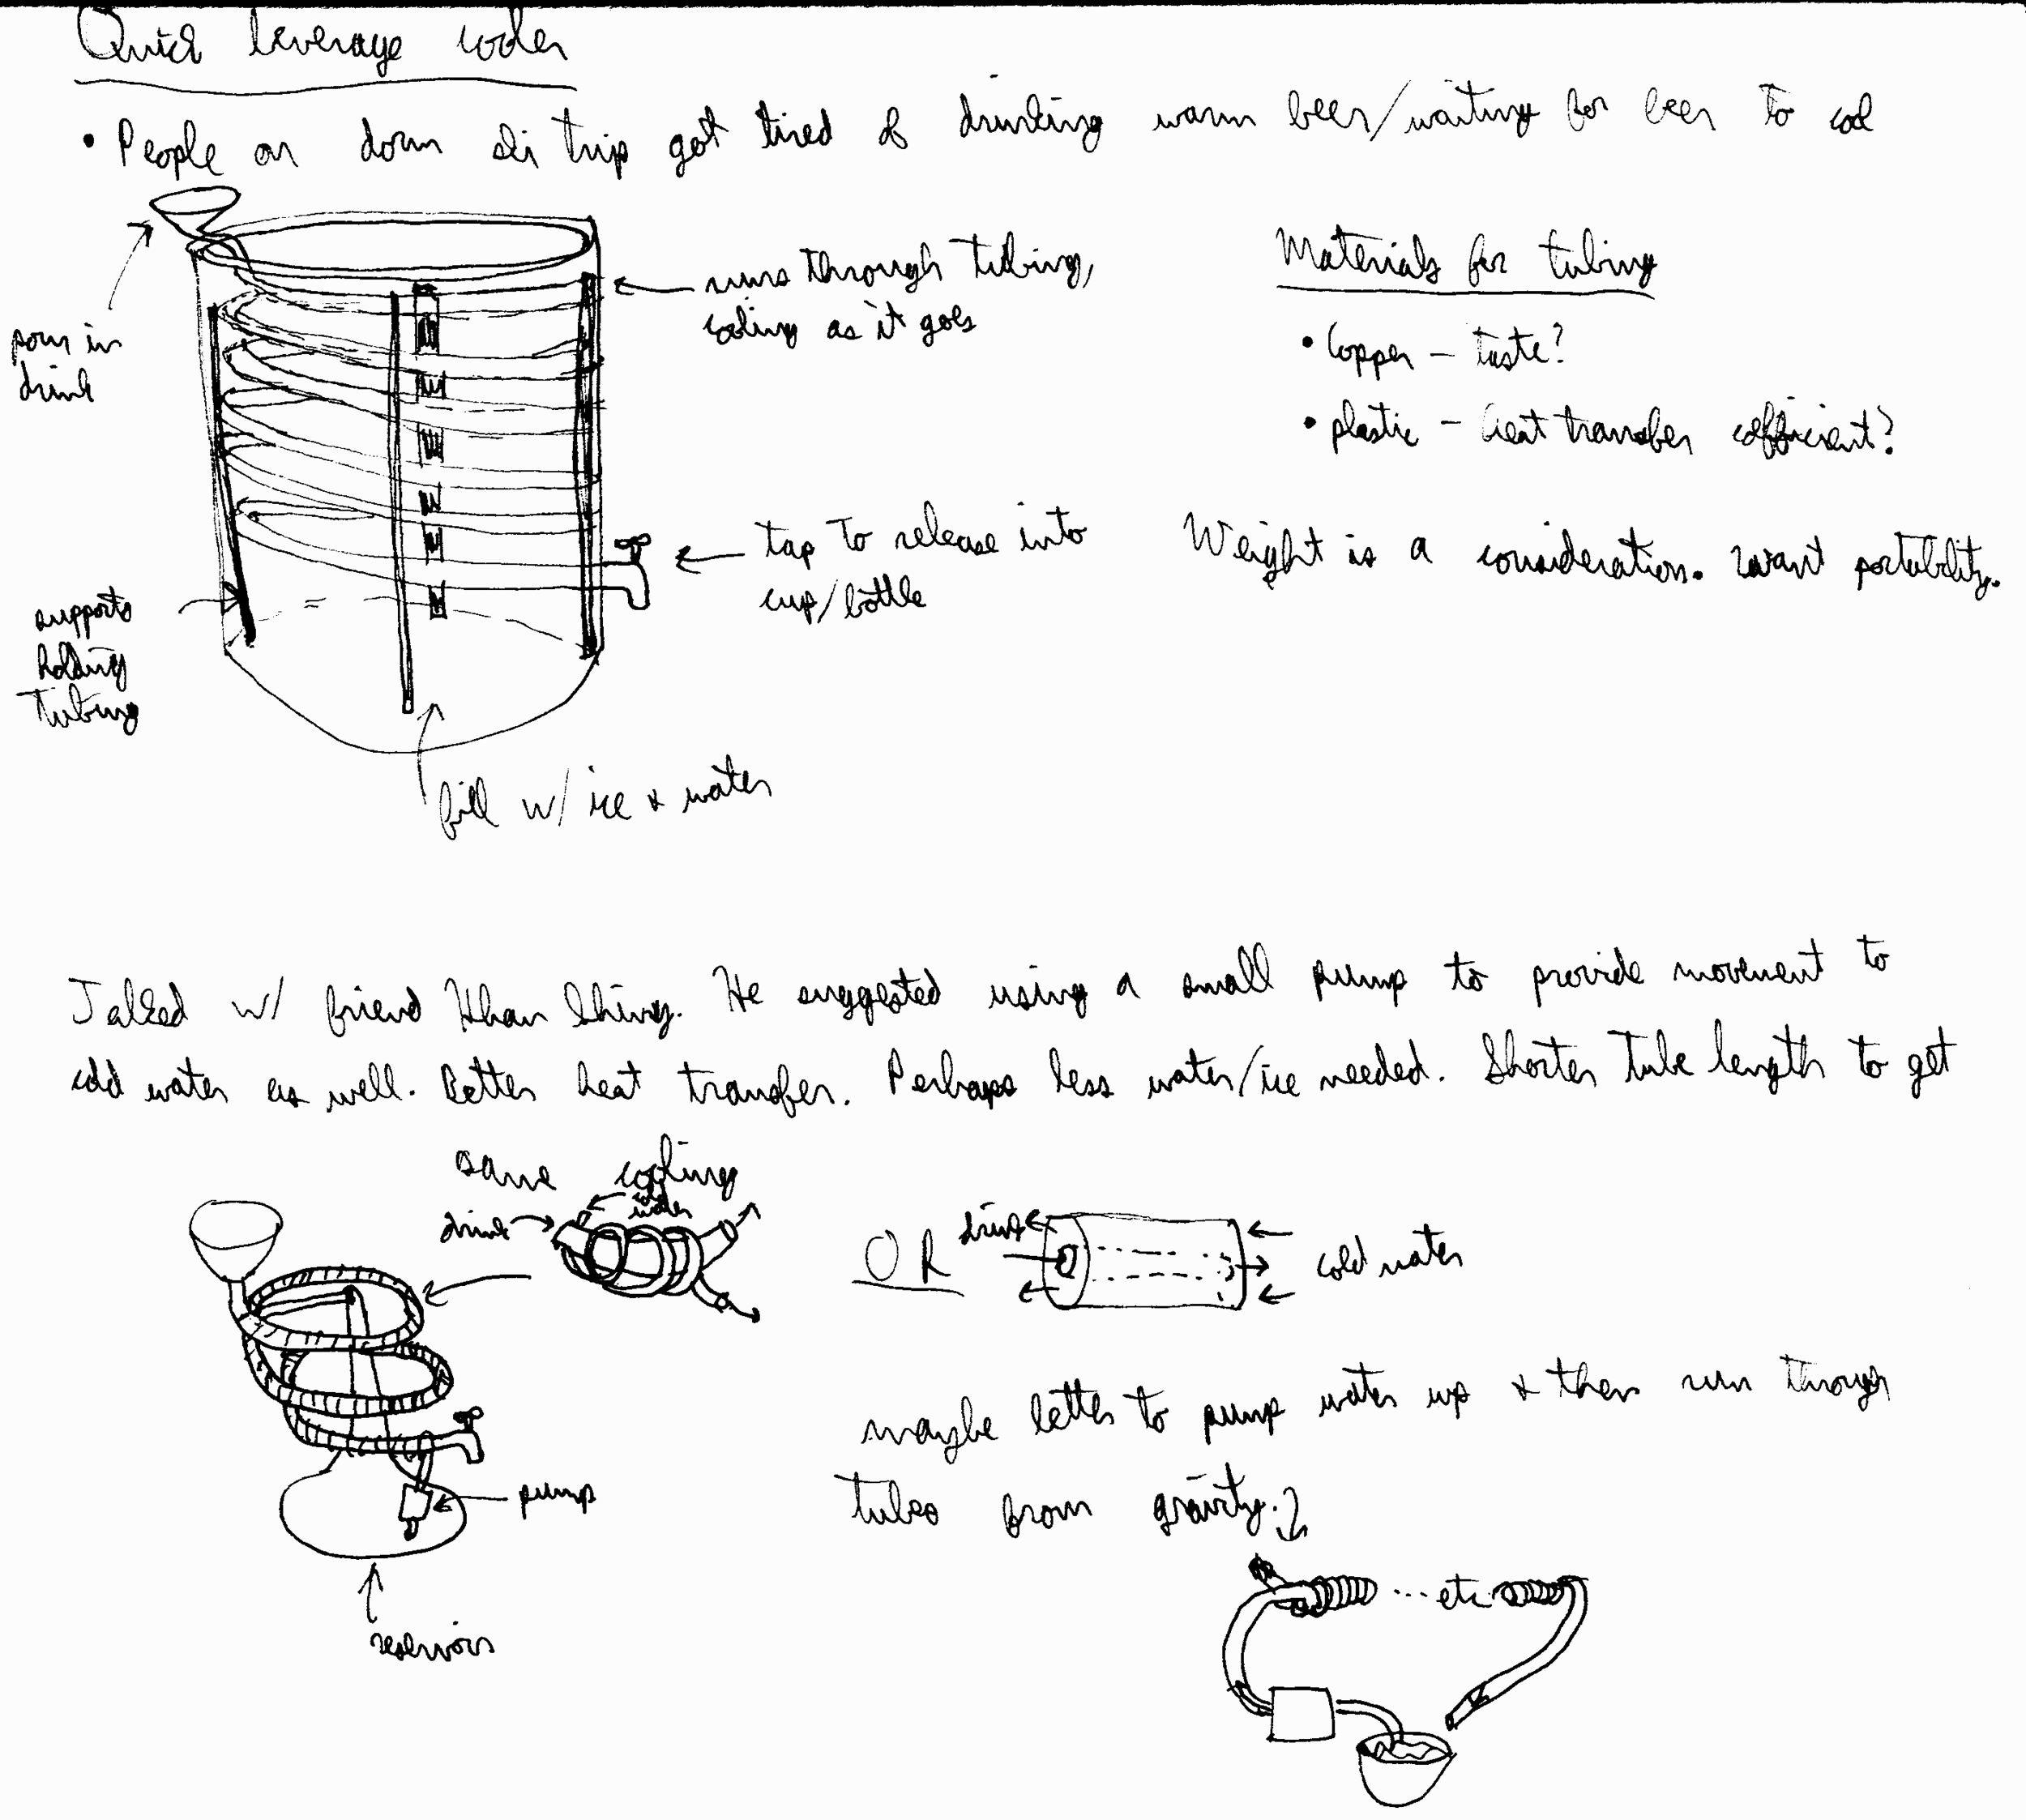 Quick beverage cooler
• People on dorm ski trip got tired of drinking warm beer/waiting for beer to cool
pour in
drink
runs through tubing,
cooling as it goes
Materials for tubing
• Copper – taste?
• plastic – heat transfer coefficient?
tap to release into
cup/bottle
Weight is a consideration. Want portability.
supports
holding
tubing
fill w/ ice & water
Talked w/ friend. He suggested using a small pump to provide movement to
cold water as well. Better heat transfer. Perhaps less water/ice needed. Shorter tube length to get
same cooling
drink
cold
water
OR
drink
cold water
maybe better to pump water up & then run through
tubes from gravity.
pump
reservoir
...etc